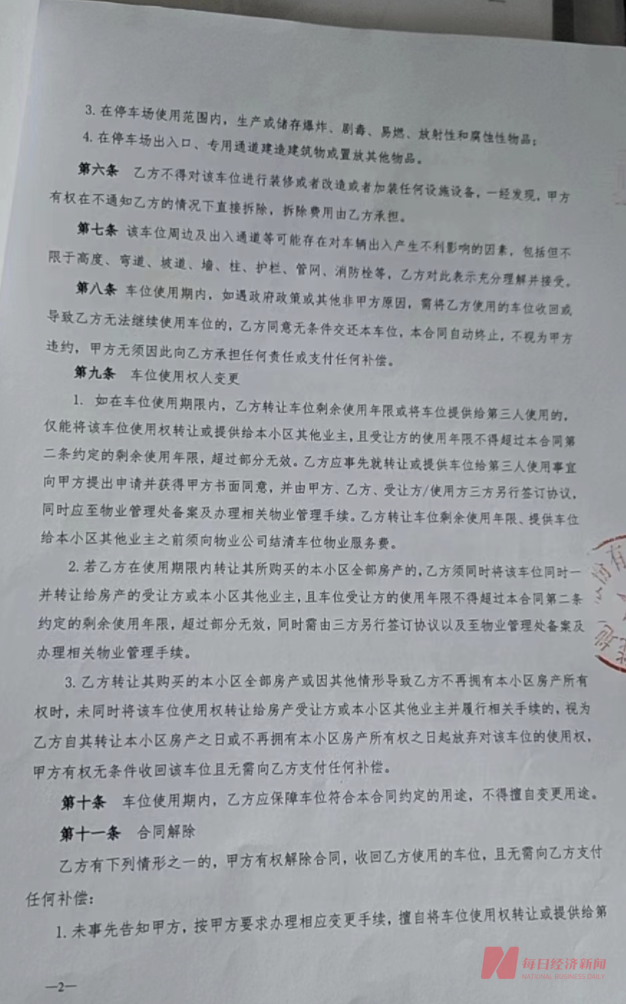 3. 在停车场使用范围内，生产或储存爆炸、剧毒、易燃、放射性和腐蚀性物品；
4. 在停车场出入口、专用通道建造建筑物或置放其他物品。
第六条 乙方不得对该车位进行装修或者改造或者加装任何设施设备，一经发现，甲方
有权在不通知乙方的情况下直接拆除，拆除费用由乙方承担。
第七条 该车位周边及出入通道等可能存在对车辆出入产生不利影响的因素，包括但不
限于高度、弯道、坡道、墙、柱、护栏、管网、消防栓等，乙方对此表示充分理解并接受。
第八条 车位使用期内，如遇政府政策或其他非甲方原因，需将乙方使用的车位收回或
导致乙方无法继续使用车位的，乙方同意无条件交还本车位，本合同自动终止，不视为甲方
违约，甲方无须因此向乙方承担任何责任或支付任何补偿。
第九条 车位使用权人变更
1. 如在车位使用期限内，乙方转让车位剩余使用年限或将车位提供给第三人使用的，
仅能将该车位使用权转让或提供给本小区其他业主，且受让方的使用年限不得超过本合同第
二条约定的剩余使用年限，超过部分无效。乙方应事先就转让或提供车位给第三人使用事宜
向甲方提出申请并获得甲方书面同意，并由甲方、乙方、受让方/使用方三方另行签订协议，
同时应至物业管理处备案及办理相关物业管理手续。乙方转让车位剩余使用年限、提供车位
给本小区其他业主之前须向物业公司结清车位物业服务费。
2. 若乙方在使用期限内转让其所购买的本小区全部房产的，乙方须同时将该车位同时一
并转让给房产的受让方或本小区其他业主，且车位受让方的使用年限不得超过本合同第二条
约定的剩余使用年限，超过部分无效，同时需由三方另行签订协议以及至物业管理处备案及
办理相关物业管理手续。
3. 乙方转让其购买的本小区全部房产或因其他情形导致乙方不再拥有本小区房产所有
权时，未同时将该车位使用权转让给房产受让方或本小区其他业主并履行相关手续的，视为
乙方自其转让本小区房产之日或不再拥有本小区房产所有权之日起放弃对该车位的使用权，
甲方有权无条件收回该车位且无需向乙方支付任何补偿。
第十条 车位使用期内，乙方应保障车位符合本合同约定的用途，不得擅自变更用途。
第十一条 合同解除
乙方有下列情形之一的，甲方有权解除合同，收回乙方使用的车位，且无需向乙方支付
任何补偿：
1. 未事先告知甲方，按甲方要求办理相应变更手续，擅自将车位使用权转让或提供给第
每日经济新闻
NATIONAL BUSINESS DAILY
—2—